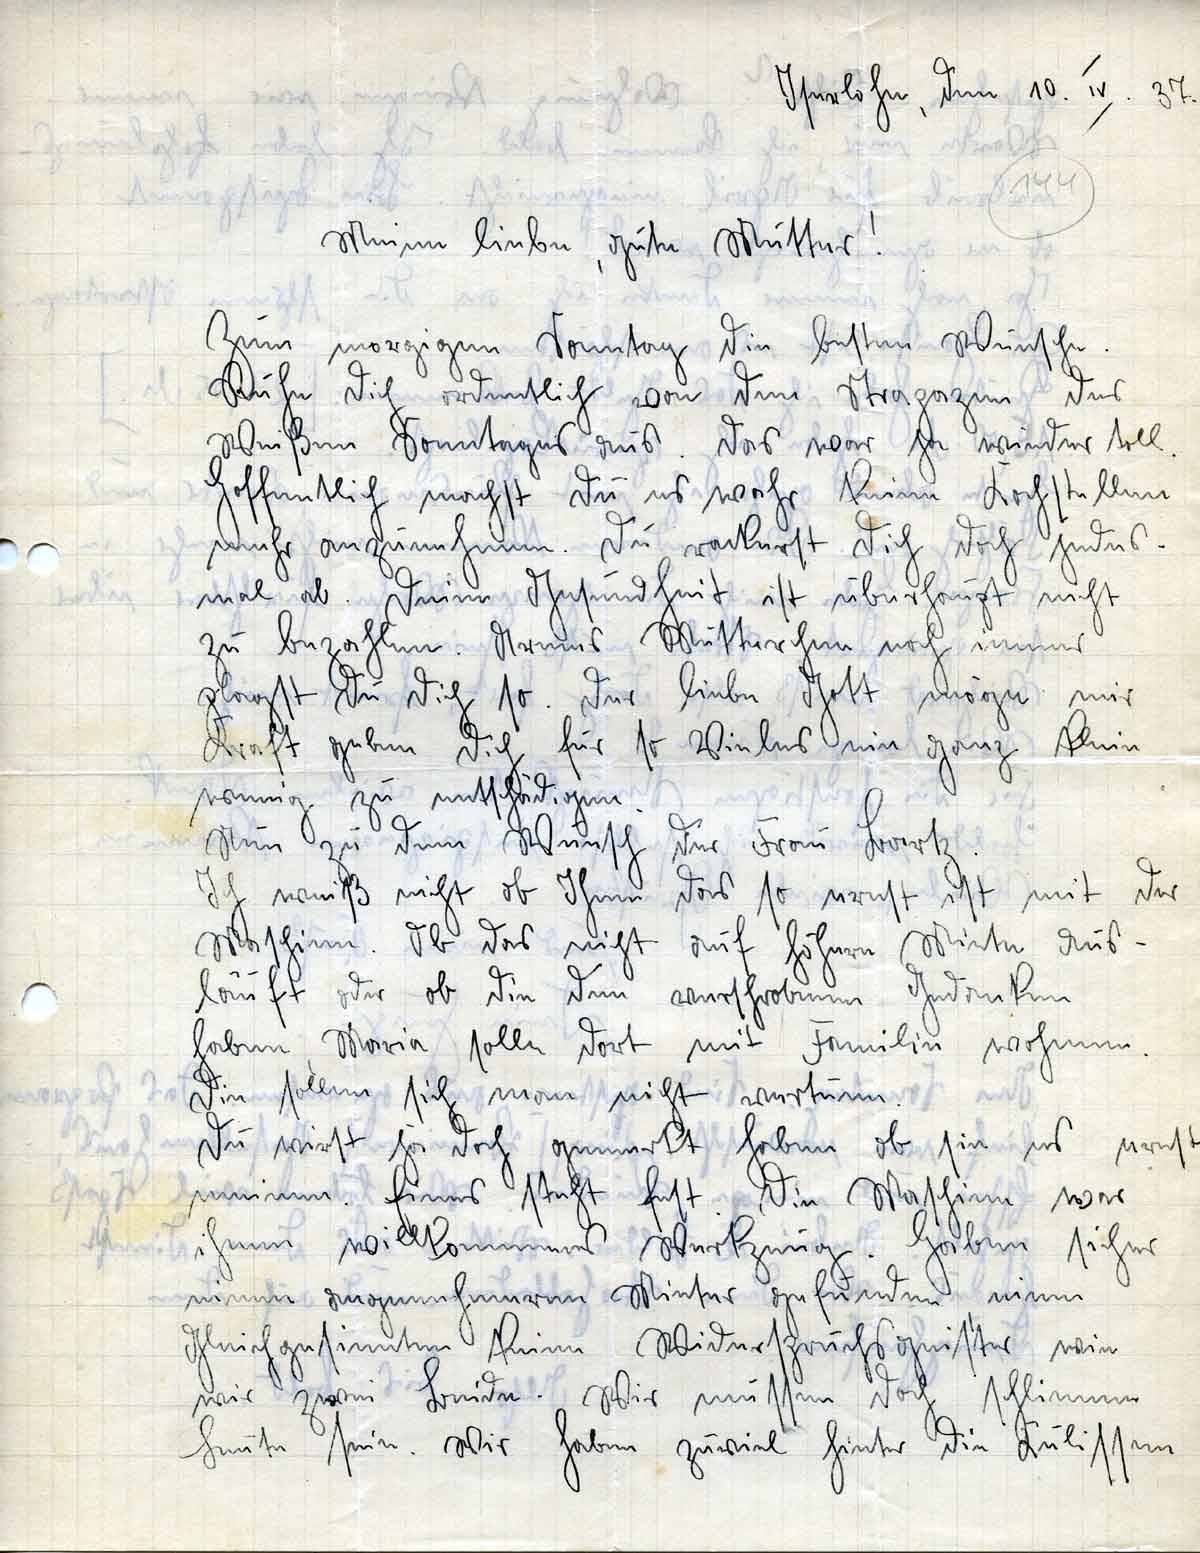 Iserlohn, den 10. IV. 37.
144
Meine liebe, gute Mutter!
Zum morgigen Sonntag die besten Wünsche.
Ruhe Dich ordentlich von den Strapazen des
Weißen Sonntages aus. Das war ja wunder toll.
Hoffentlich machst Du es wahr keine Kochstellen
mehr anzunehmen. Du rackerst Dich doch jedes-
mal ab. Deine Gesundheit ist überhaupt nicht
zu bezahlen. Armes Mütterchen noch immer
plagst Du Dich so. Der liebe Gott möge mir
Kraft geben Dich für so Vieles ein ganz klein
wenig zu entschädigen.
Nun zu dem Wunsch der Frau
Ich weiß nicht ob Ihnen das so ernst ist mit der
Maschine. Ob das nicht auf höhere Miete aus-
läuft oder ob die den verschrobenen Gedanken
haben, Maria solle dort mit Familie wohnen.
Die sollen sich man nicht vertuen.
Du wirst ja doch gemerkt haben ob sie es ernst
meinen. Eines steht fest. Die Maschine war
ihnen willkommenes Werkzeug. Haben sicher
einen angenehmeren Mieter gefunden einen
Gleichgesinnten keine Widerspruchsgeister wie
wir zwei Beide. Wir müssen doch schlimme
Leute sein. Wir haben zuviel hinter die Kulissen